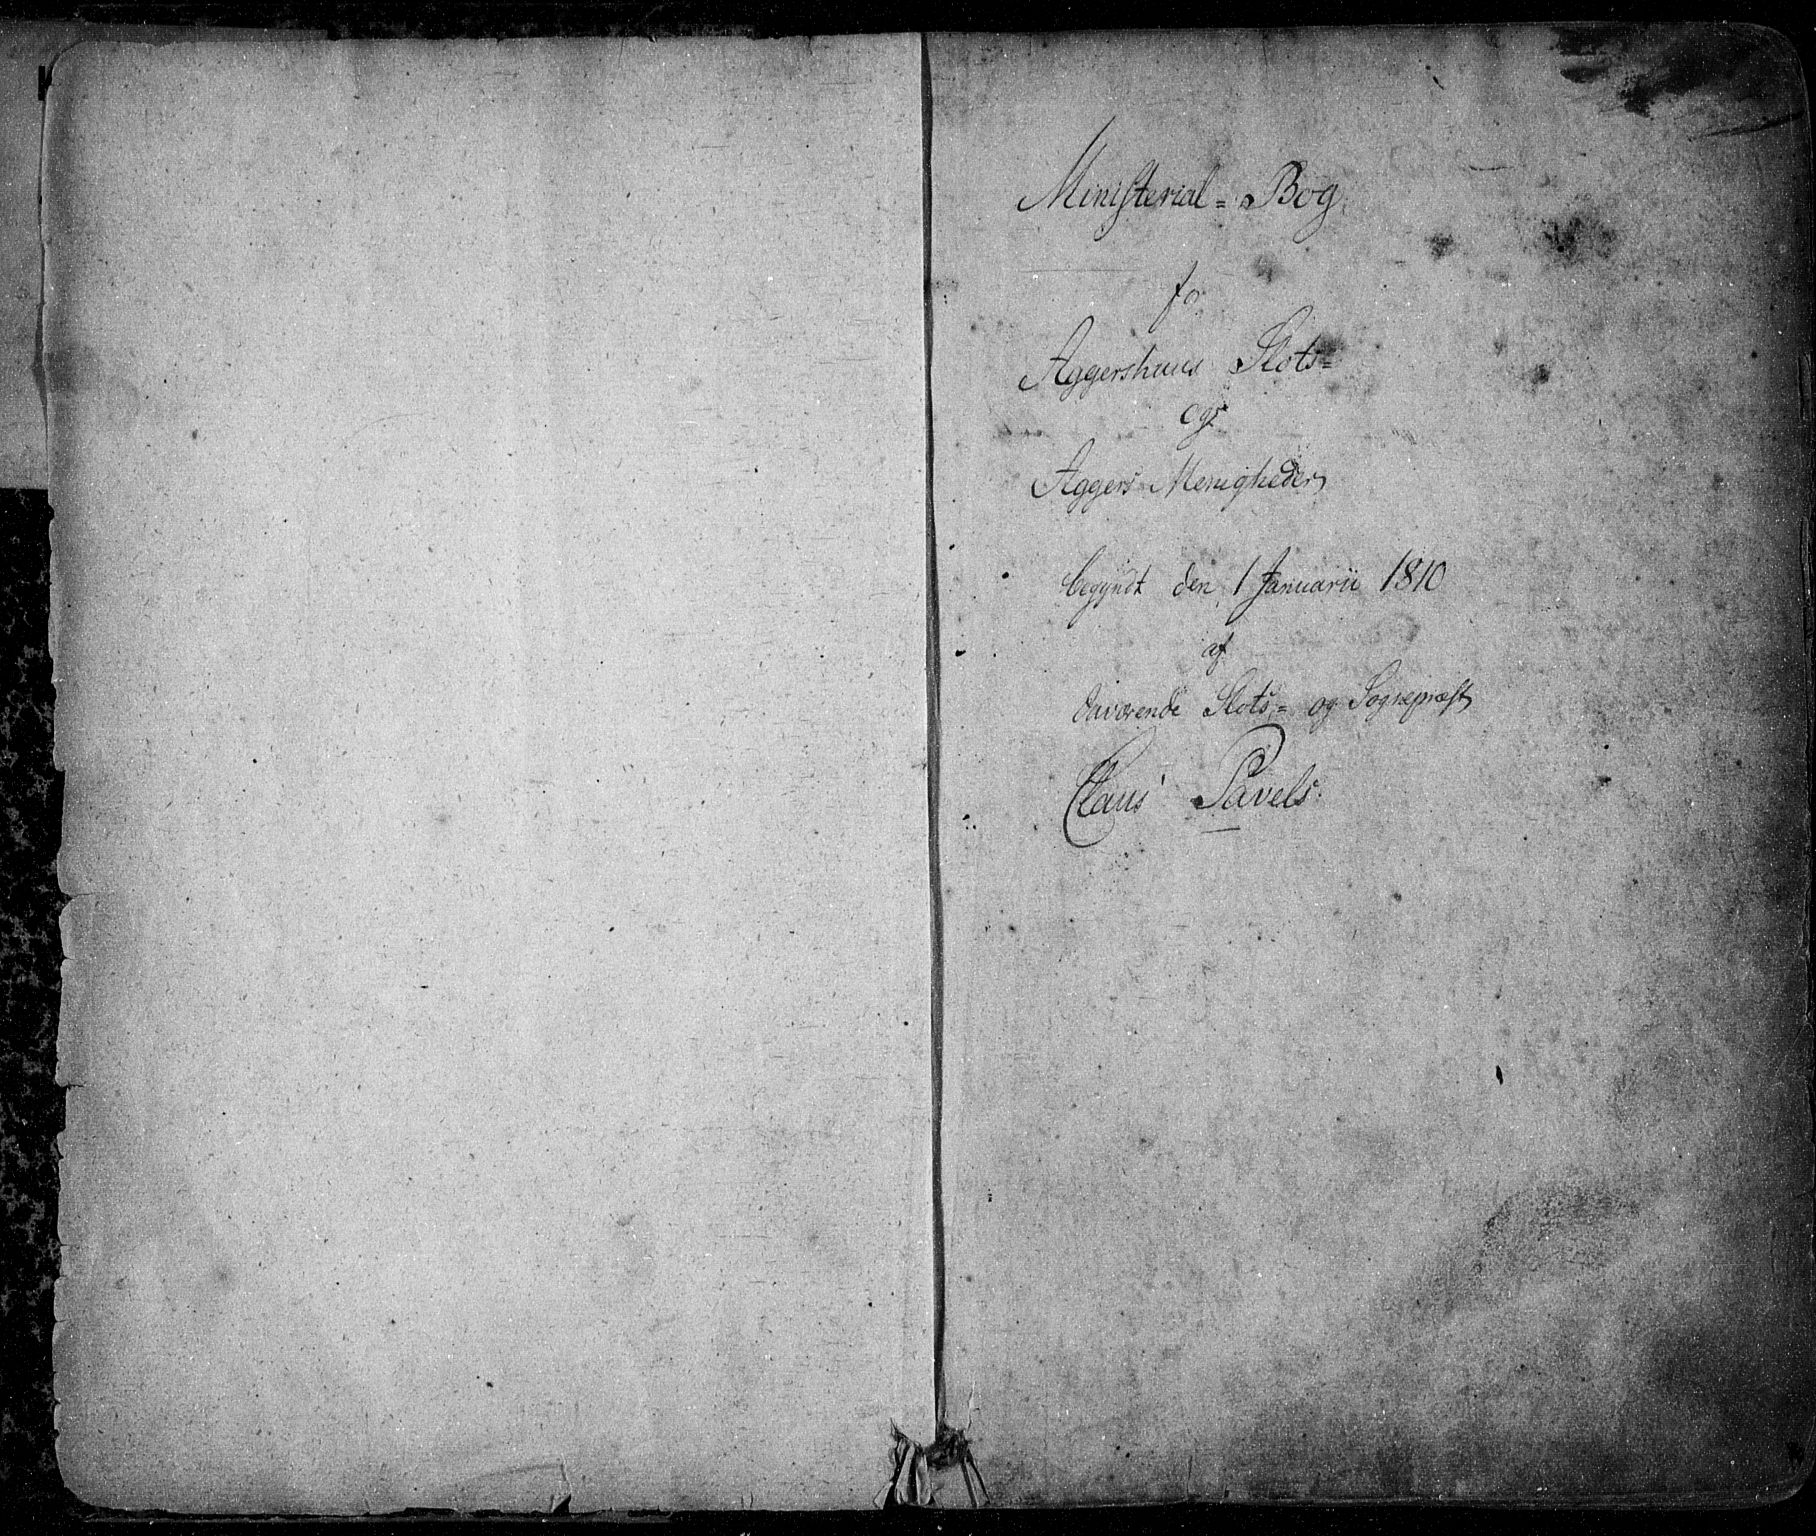 Ministerial = Bog
for
Aggershuus Slots =
og
Aggers Menigheder
begyndt den 1 Januarii 1810
af
daværende Slots = og Sognepræst
Claus Pavels.